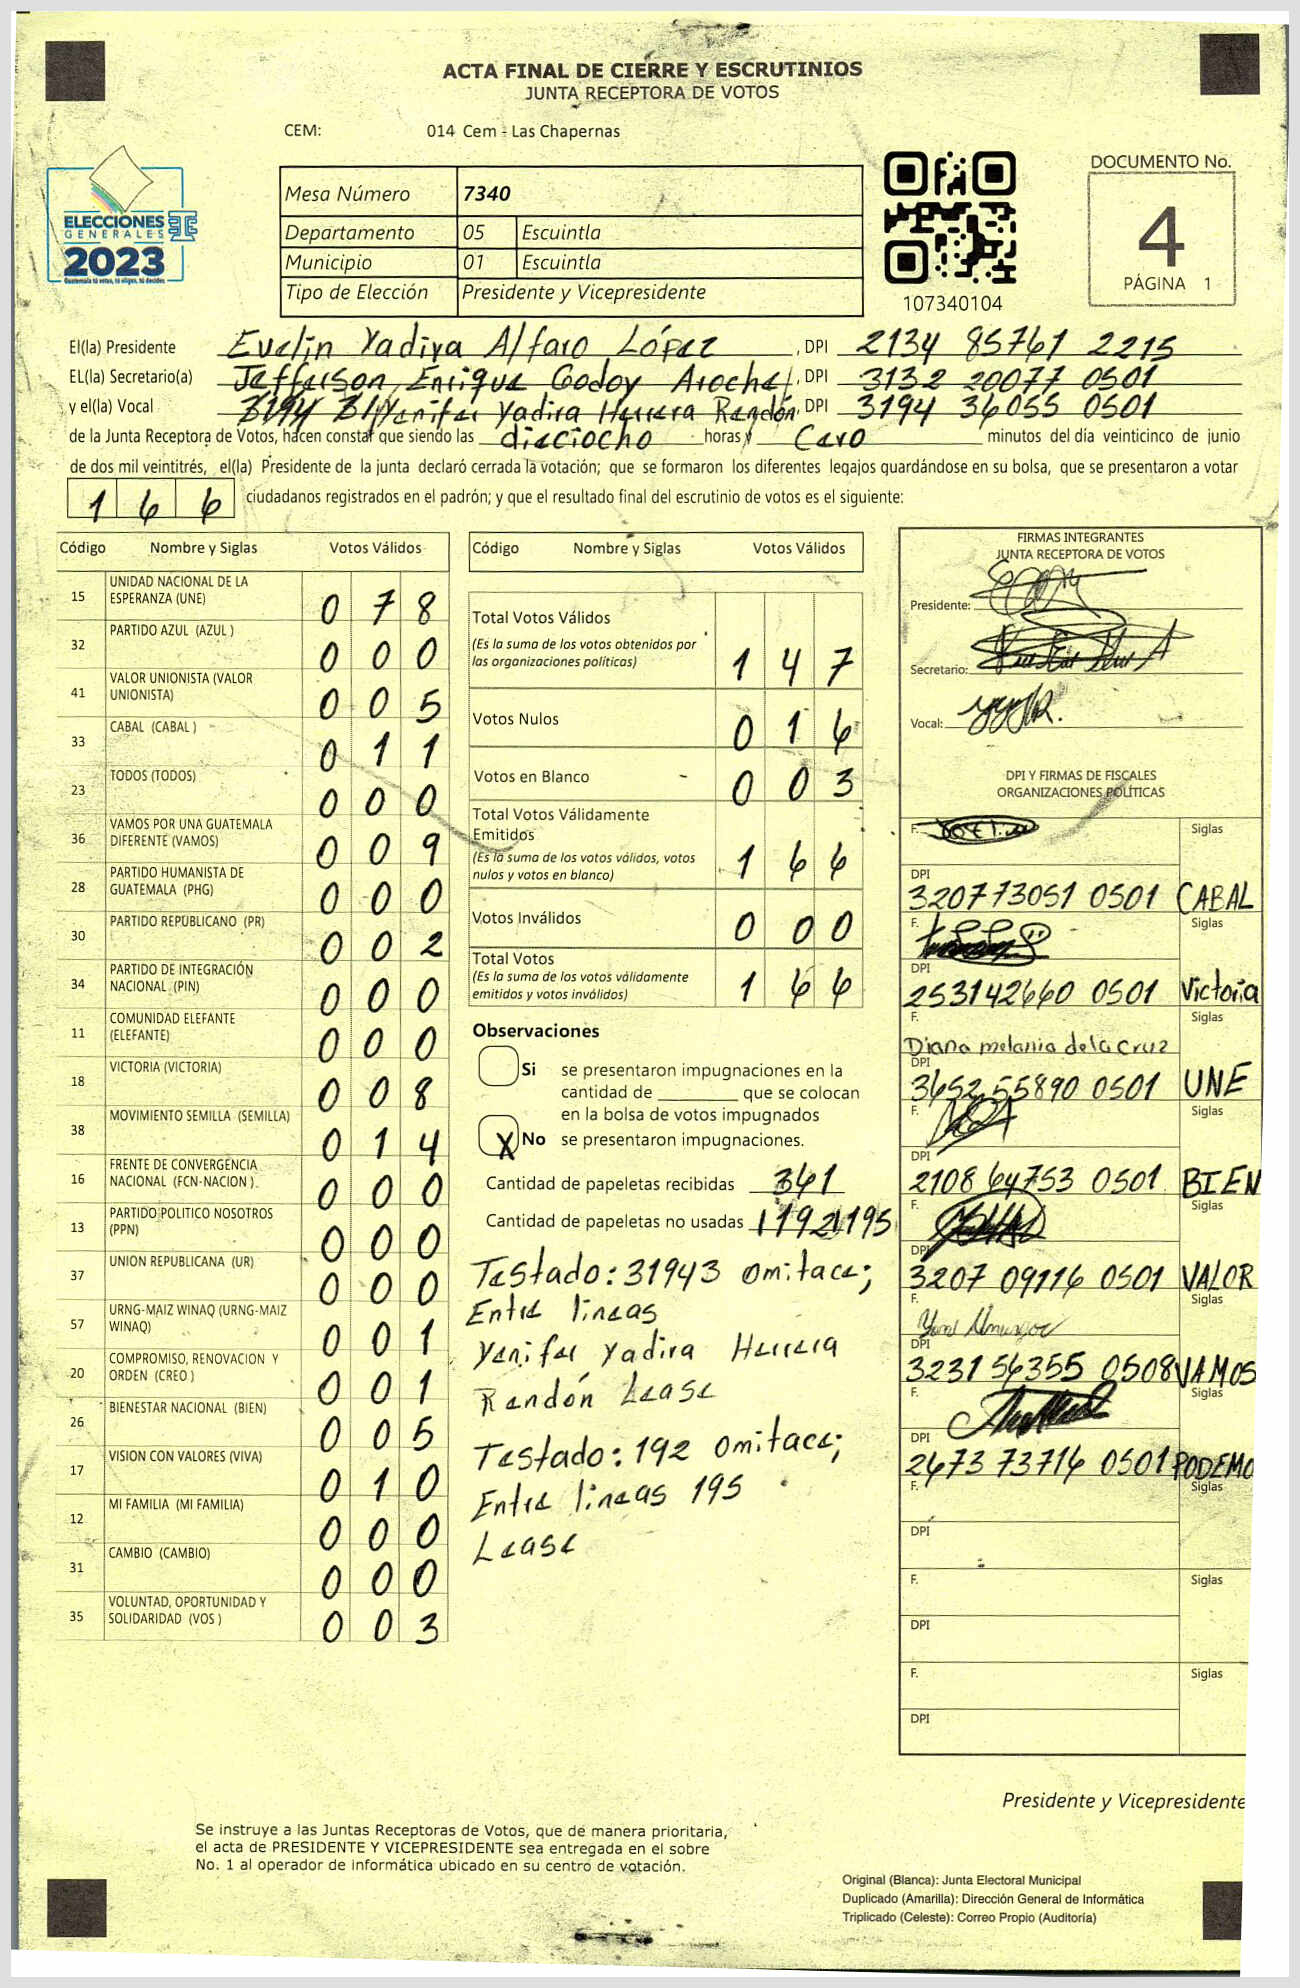 ACTA FINAL DE CIERRE Y ESCRUTINIOS
JUNTA RECEPTORA DE VOTOS
CEM: 014 Cem - Las Chapernas
ELECCIONES
GENERALES
2023
Guatemala tú votas, tú eliges, tú decides
Mesa Número 7340
Departamento 05 Escuintla
Municipio 01 Escuintla
Tipo de Elección Presidente y Vicepresidente
107340104
DOCUMENTO No.
4
PÁGINA 1
El(la) Presidente Evelin Yadira Alfaro López, DPI 2134 85761 2215
EL(la) Secretario(a) Jefferson Enrique Godoy Aroche, DPI 3132 20077 0501
y el(la) Vocal Yenifer Yadira Herrera Rendón, DPI 3194 36055 0501
de la Junta Receptora de Votos, hacen constar que siendo las dieciocho horas y Cero minutos del día veinticinco de junio
de dos mil veintitrés, el(la) Presidente de la junta declaró cerrada la votación; que se formaron los diferentes legajos guardándose en su bolsa, que se presentaron a votar
166 ciudadanos registrados en el padrón; y que el resultado final del escrutinio de votos es el siguiente:
Código Nombre y Siglas Votos Válidos
15 UNIDAD NACIONAL DE LA ESPERANZA (UNE) 0 7 8
32 PARTIDO AZUL (AZUL ) 0 0 0
41 VALOR UNIONISTA (VALOR UNIONISTA) 0 0 5
33 CABAL (CABAL ) 0 1 1
23 TODOS (TODOS) 0 0 0
36 VAMOS POR UNA GUATEMALA DIFERENTE (VAMOS) 0 0 9
28 PARTIDO HUMANISTA DE GUATEMALA (PHG) 0 0 0
30 PARTIDO REPUBLICANO (PR) 0 0 2
34 PARTIDO DE INTEGRACIÓN NACIONAL (PIN) 0 0 0
11 COMUNIDAD ELEFANTE (ELEFANTE) 0 0 0
18 VICTORIA (VICTORIA) 0 0 8
38 MOVIMIENTO SEMILLA (SEMILLA) 0 1 4
16 FRENTE DE CONVERGENCIA NACIONAL (FCN-NACION ) 0 0 0
13 PARTIDO POLITICO NOSOTROS (PPN) 0 0 0
37 UNION REPUBLICANA (UR) 0 0 0
57 URNG-MAIZ WINAQ (URNG-MAIZ WINAQ) 0 0 1
20 COMPROMISO, RENOVACION Y ORDEN (CREO ) 0 0 1
26 BIENESTAR NACIONAL (BIEN) 0 0 5
17 VISION CON VALORES (VIVA) 0 1 0
12 MI FAMILIA (MI FAMILIA) 0 0 0
31 CAMBIO (CAMBIO) 0 0 0
35 VOLUNTAD, OPORTUNIDAD Y SOLIDARIDAD (VOS ) 0 0 3
Código Nombre y Siglas Votos Válidos
Total Votos Válidos
(Es la suma de los votos obtenidos por
las organizaciones políticas) 1 4 7
Votos Nulos 0 1 6
Votos en Blanco 0 0 3
Total Votos Válidamente
Emitidos
(Es la suma de los votos válidos, votos
nulos y votos en blanco) 1 6 6
Votos Inválidos 0 0 0
Total Votos
(Es la suma de los votos válidamente
emitidos y votos inválidos) 1 6 6
Observaciones
Si se presentaron impugnaciones en la
cantidad de ________ que se colocan
en la bolsa de votos impugnados
X No se presentaron impugnaciones.
Cantidad de papeletas recibidas 361
Cantidad de papeletas no usadas 192 195
Testado: 31943 omitace;
Entre lineas
Yenifer Yadira Herrera
Rendón Lease
Testado: 192 omitace;
Entre lineas 195
Lease
FIRMAS INTEGRANTES
JUNTA RECEPTORA DE VOTOS
Presidente:
Secretario:
Vocal:
DPI Y FIRMAS DE FISCALES
ORGANIZACIONES POLÍTICAS
F. Siglas
DPI
320773051 0501 CABAL
F. Siglas
DPI
253142660 0501 Victoria
F. Siglas
Diana melania dela cruz
DPI
3652 55890 0501 UNE
F. Siglas
DPI
2108 64753 0501 BIEN
F. Siglas
DPI
3207 09116 0501 VALOR
F. Siglas
DPI
3231 56355 0508 VAMOS
F. Siglas
DPI
2673 73716 0501 PODEMO
F. Siglas
DPI
F. Siglas
DPI
F. Siglas
DPI
Presidente y Vicepresidente
Se instruye a las Juntas Receptoras de Votos, que de manera prioritaria,
el acta de PRESIDENTE Y VICEPRESIDENTE sea entregada en el sobre
No. 1 al operador de informática ubicado en su centro de votación.
Original (Blanca): Junta Electoral Municipal
Duplicado (Amarilla): Dirección General de Informática
Triplicado (Celeste): Correo Propio (Auditoría)